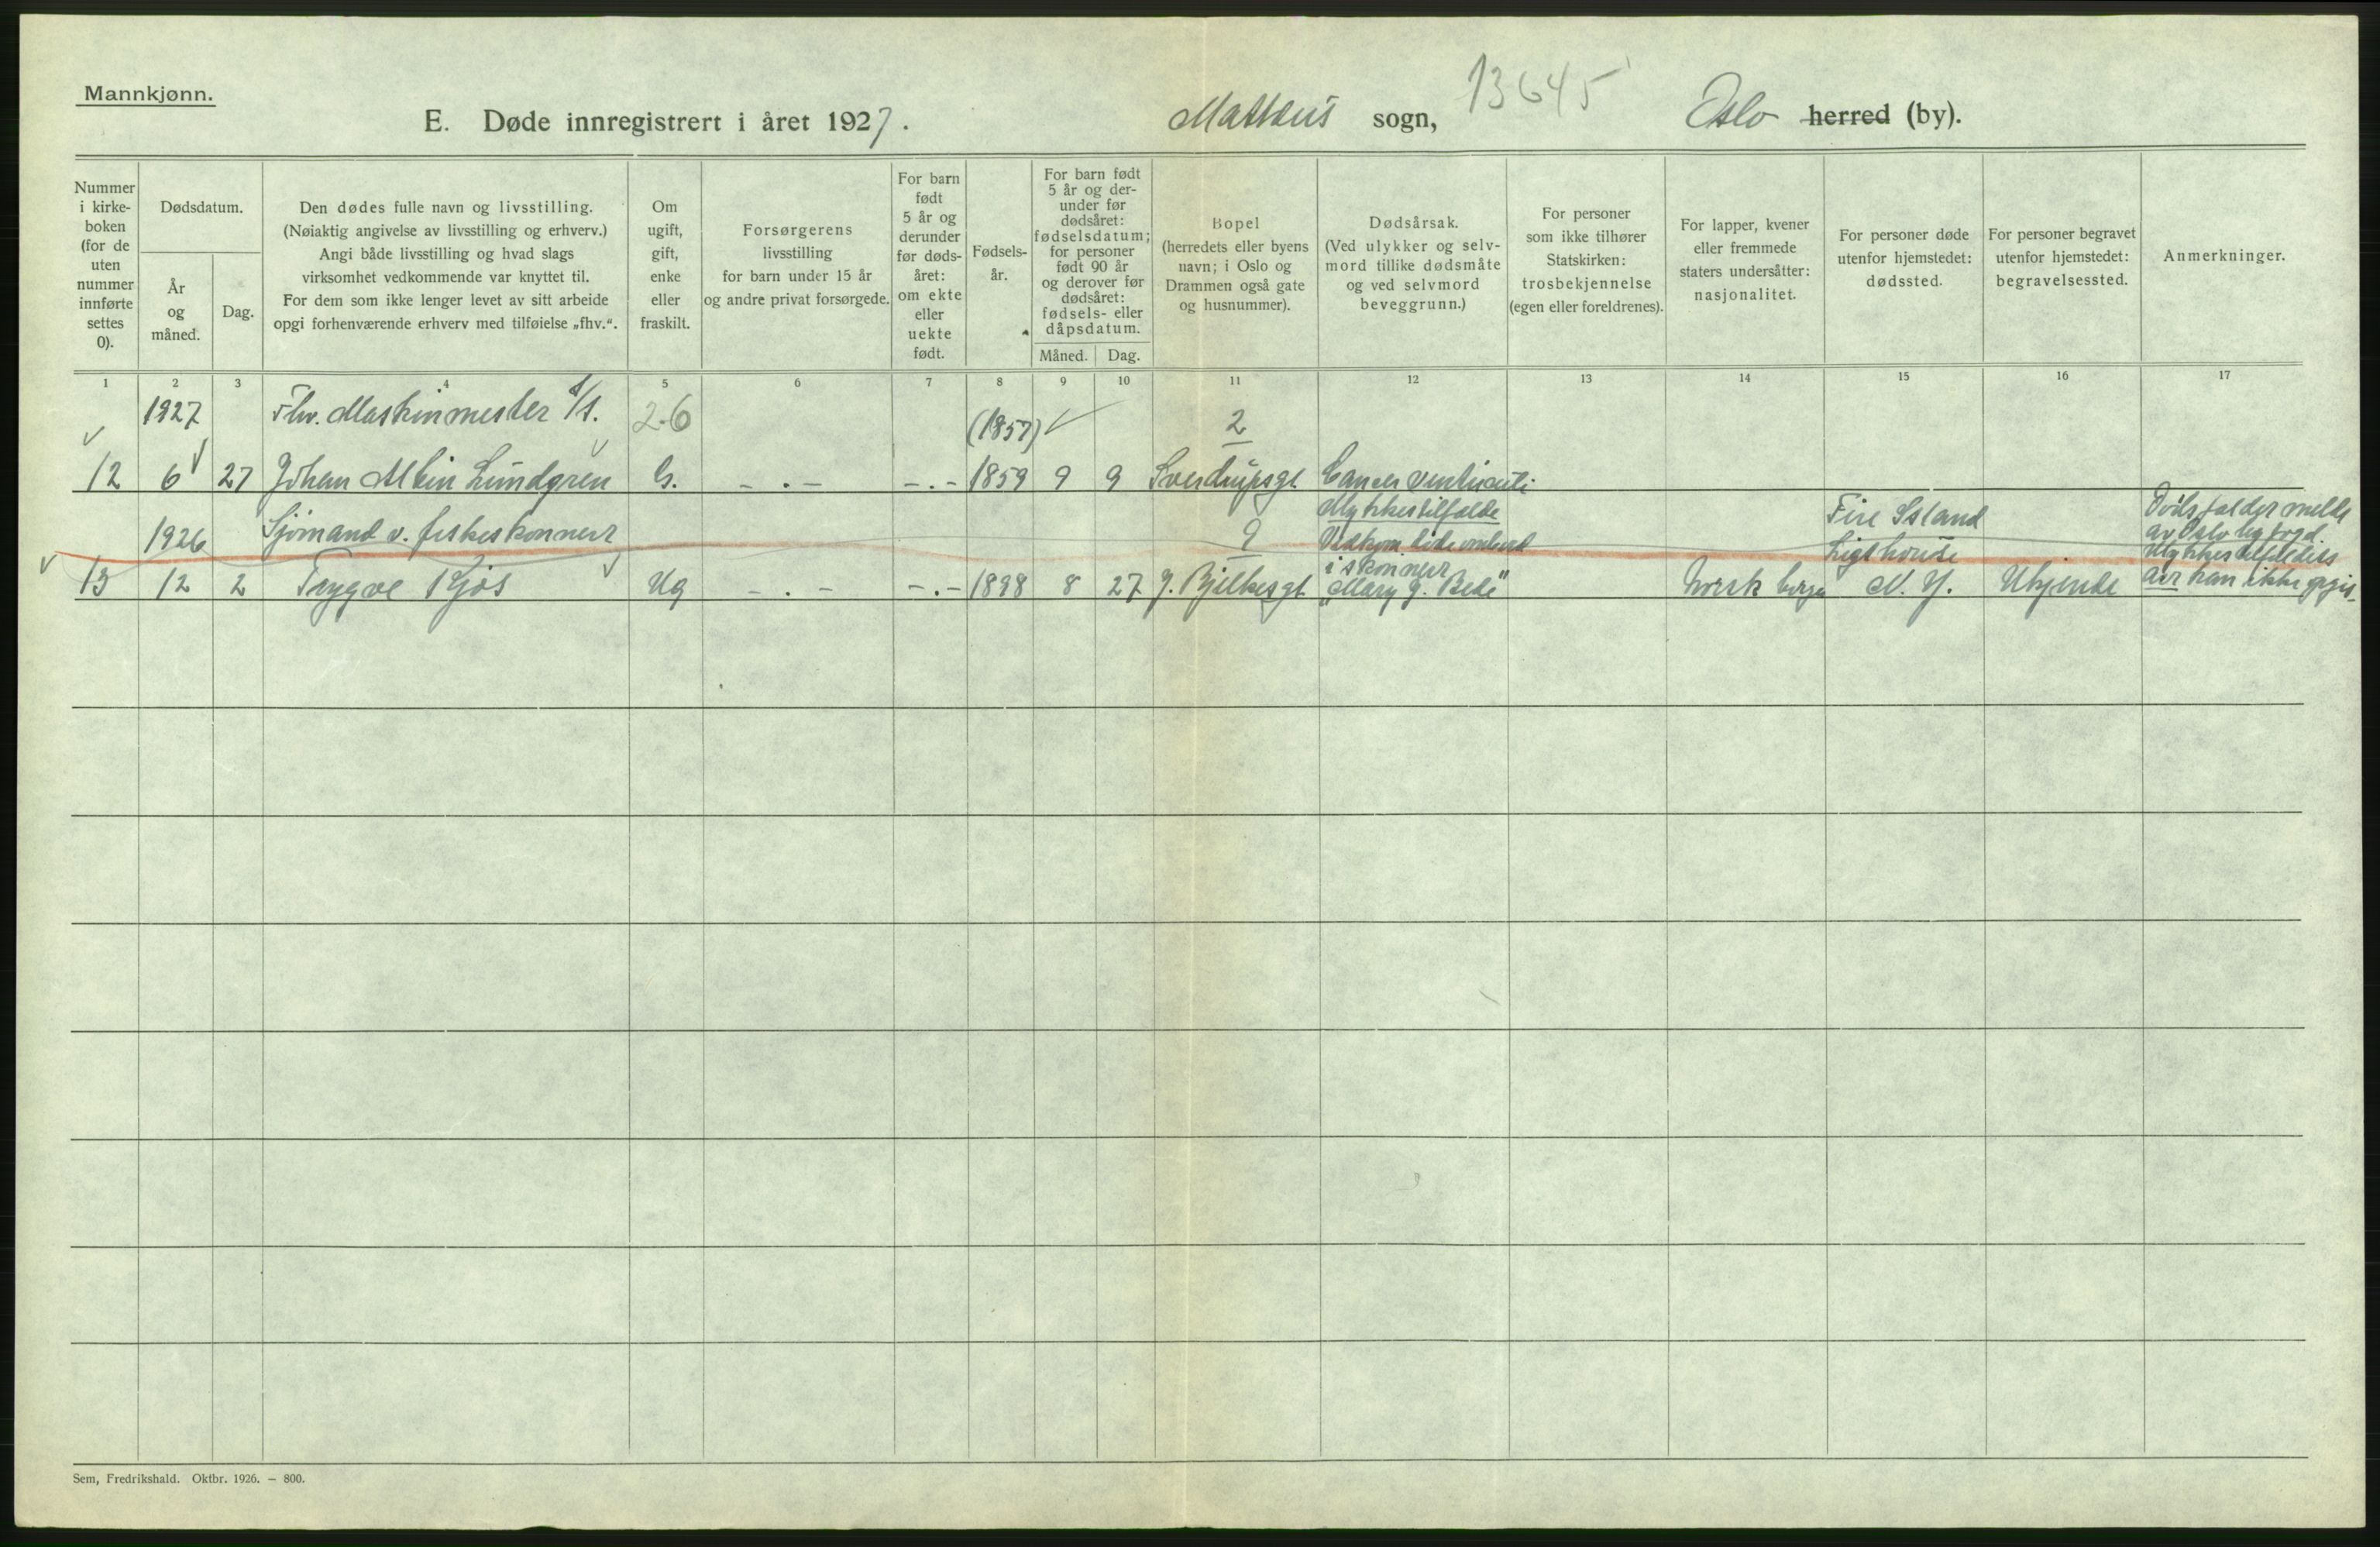 Mannkjønn.
E. Døde innregistrert i året 1927.
Mattæus sogn,
13645
Oslo herred (by).
Nummer i kirke-boken (for de uten nummer innførte settes 0).
Dødsdatum.
År og måned.
Dag.
Den dødes fulle navn og livsstilling.
(Nøiaktig angivelse av livsstilling og erhverv.)
Angi både livsstilling og hvad slags
virksomhet vedkommende var knyttet til.
For dem som ikke lenger levet av sitt arbeide
opgi forhenværende erhverv med tilføielse „fhv.“.
Om ugift, gift, enke eller fraskilt.
Forsørgerens
livsstilling
for barn under 15 år
og andre privat forsørgede.
For barn født 5 år og derunder før døds-året: om ekte eller uekte født.
Fødsels-år.
For barn født
5 år og der-
under før
dødsåret:
fødselsdatum;
for personer
født 90 år
og derover før
dødsåret:
fødsels- eller
dåpsdatum.
Måned.
Dag.
Bopel
(herredets eller byens
navn; i Oslo og
Drammen også gate
og husnummer).
Dødsårsak.
(Ved ulykker og selv-
mord tillike dødsmåte
og ved selvmord
beveggrunn.)
For personer
som ikke tilhører
Statskirken:
trosbekjennelse
(egen eller foreldrenes).
For lapper, kvener
eller fremmede
staters undersåtter:
nasjonalitet.
For personer døde
utenfor hjemstedet:
dødssted.
For personer begravet
utenfor hjemstedet:
begravelsessted.
Anmerkninger.
1 2 3 4 5 6 7 8 9 10 11 12 13 14 15 16 17
1927 Fhv. Maskinmester 2-6 (1857) 2
12 6 27 Johan Albin Lundgren G. - . - - . - 1859 9 9 Sverdrupsgt. Cancer ventriculi
1926 Sjømand v. fiskeskonnert 9 Ulykkestilfælde
i skonnert
Fire Island
Ligthouse
13 12 2 Trygve Kjøs Ug - . - - . - 1898 8 27 J. Bjelkesgt. „Mary G. Bede" Norsk borger N. Y. Ukjendt
Dødsfaldet meldt
av Oslo
han ikke
Sem, Fredrikshald. Oktbr. 1926. — 800.